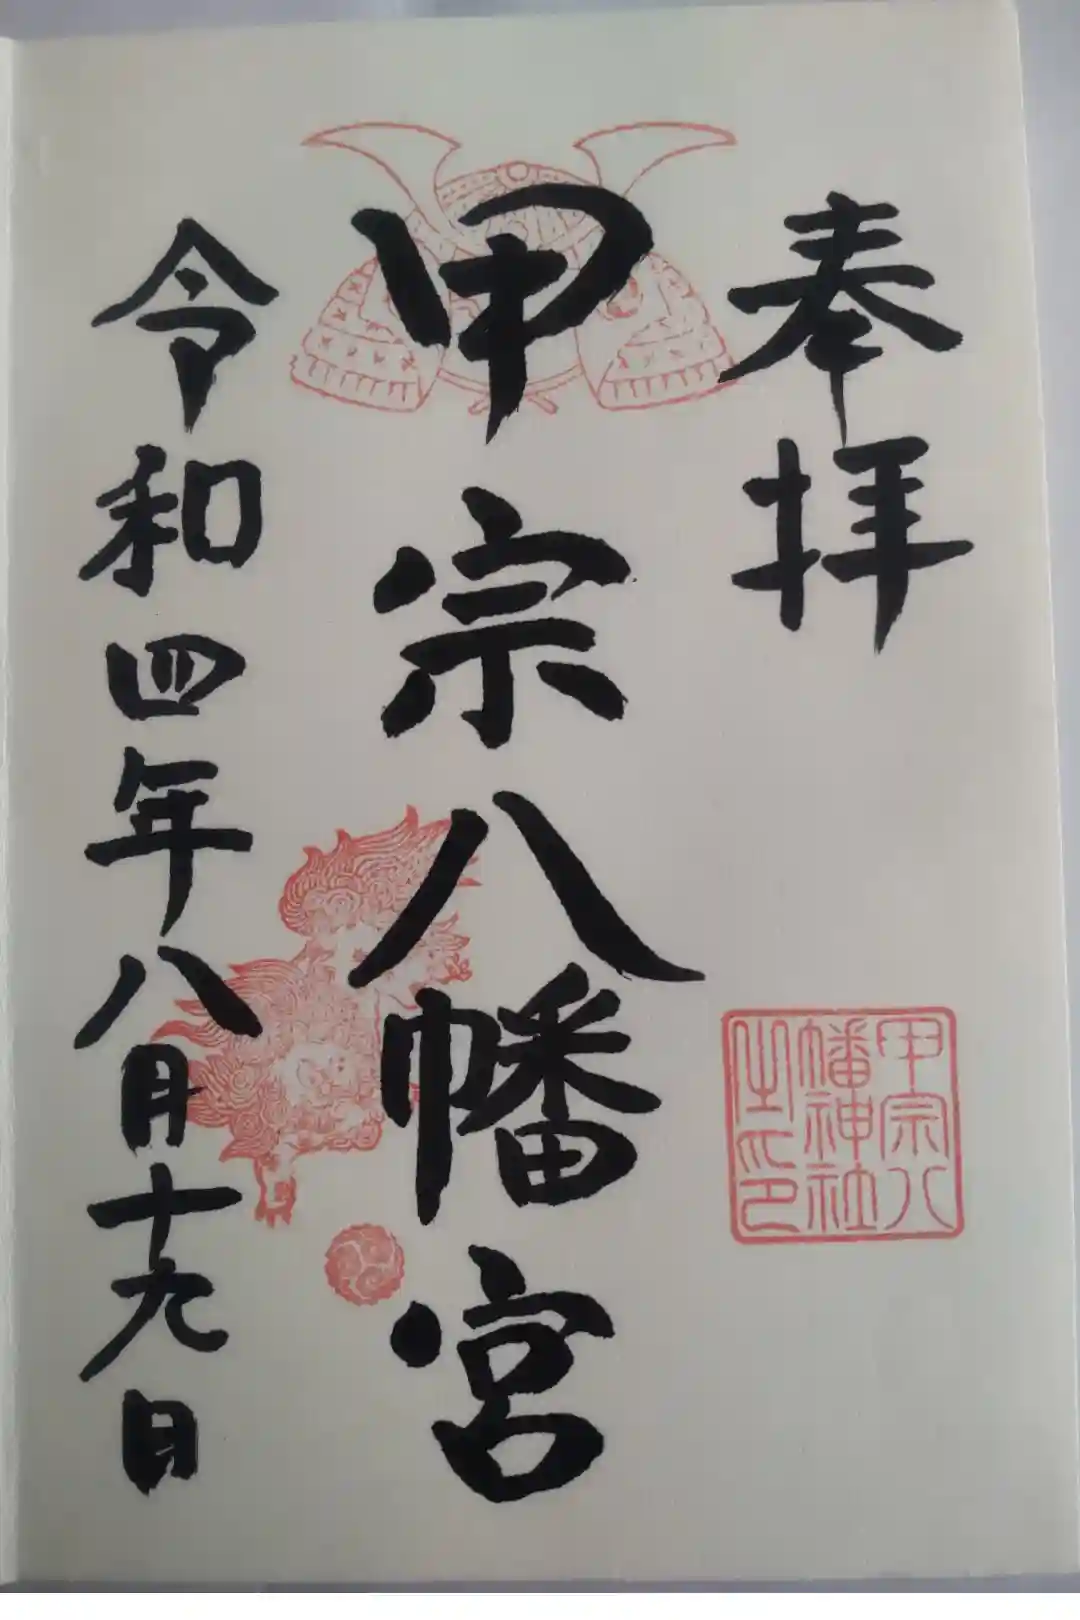 奉拝
甲宗八
幡神社
之印
甲宗八幡宮
令和四年八月十九日